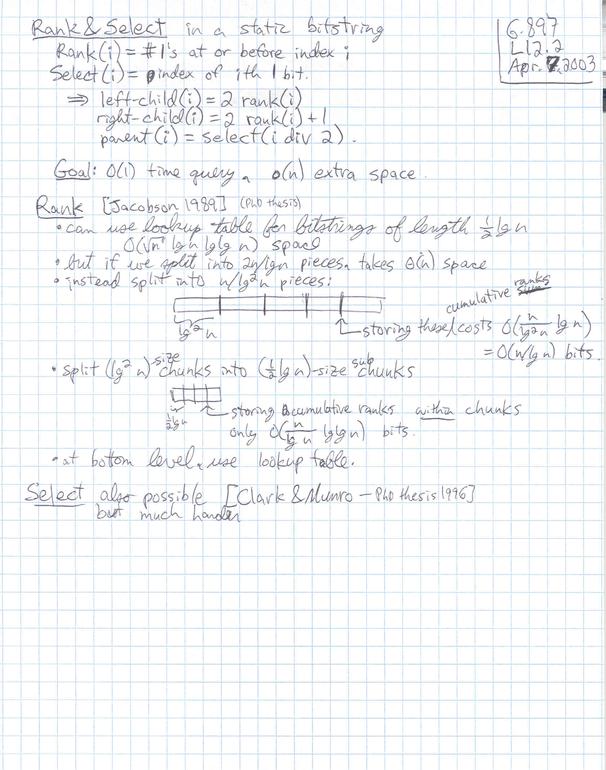 6.897
L12.2
Apr. 7, 2003
Rank & Select in a static bitstring
Rank(i) = #1's at or before index i
Select(i) = index of ith 1 bit.
⇒ left-child(i) = 2 rank(i)
right-child(i) = 2 rank(i) + 1
parent(i) = select(i div 2).
Goal: O(1) time query, o(n) extra space.
Rank [Jacobson 1989] (PhD thesis)
• can use lookup table for bitstrings of length ½ lg n
O(√n lg n lg lg n) space
• but if we split into 2n/lg n pieces, takes Θ(n) space
• instead split into n/lg² n pieces:
cumulative ranks
lg² n
storing these costs O(n/lg² n lg n)
= O(n/lg n) bits.
• split (lg² n)-size chunks into (½ lg n)-size subchunks
½ lg n
storing cumulative ranks within chunks
only O(n/lg n lg lg n) bits.
• at bottom level, use lookup table.
Select also possible [Clark & Munro – PhD thesis 1996]
but much harder